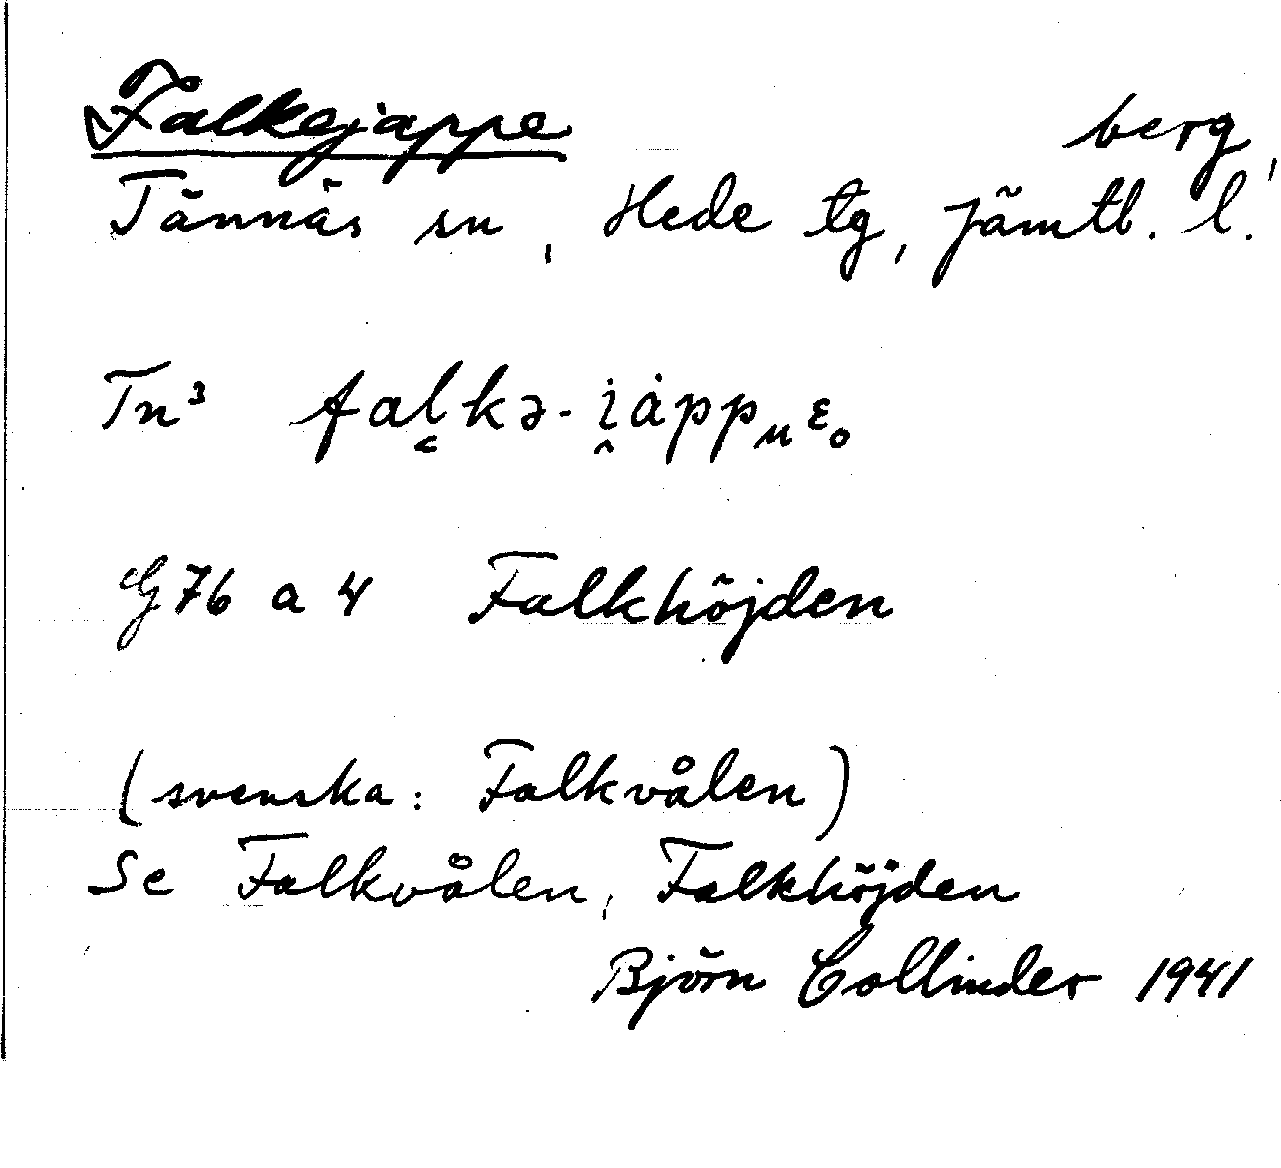 Falkejappe berg,
Tännäs sn, Hede tg, Jämtl. l.
Tn³
G 76 a 4 Falkhöjden
(svenska: Falkvålen)
Se Falkvålen, Falkhöjden
Björn Collinder 1941